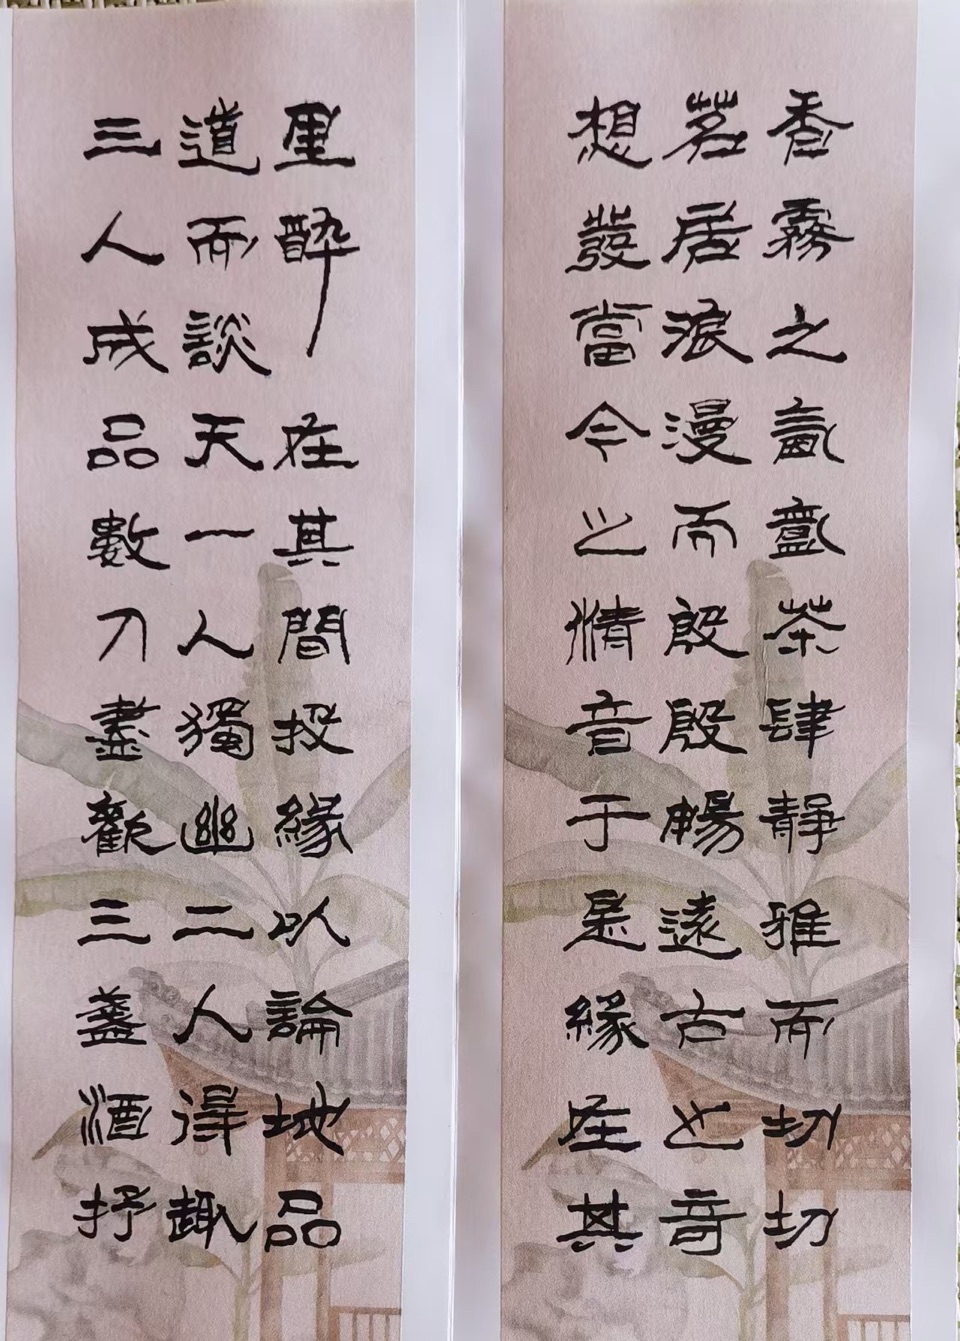 香霧之氤氳茶肆靜雅而切切
茗居浪漫而殷殷暢遠古之奇
想發當今之情音于是緣在其
里醉在其間投緣以論地品
道而談天一人獨幽二人得趣
三人成品數刀盡歡三盞酒抒